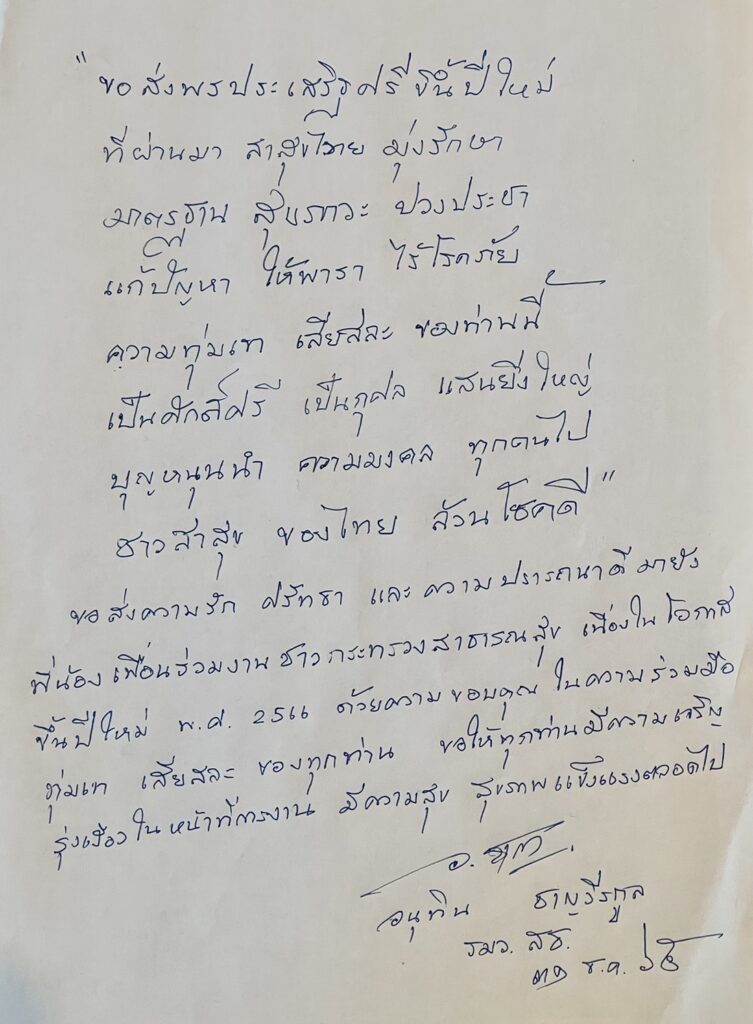 "ขอส่งพรประเสริฐศรีขึ้นปีใหม่
ที่ผ่านมา สาสุขไทย มุ่งรักษา
มาตรฐาน สุขภาวะ ปวงประชา
แก้ปัญหา ให้พารา ไร้โรคภัย
ความทุ่มเท เสียสละ ของท่านนี้
เป็นศักดิ์ศรี เป็นกุศล แสนยิ่งใหญ่
บุญหนุนนำ ความมงคล ทุกคนไป
ชาวสาสุข ของไทย ล้วนโชคดี"
ขอส่งความรัก ศรัทธา และความปรารถนาดีมายัง
พี่น้องเพื่อนร่วมงานชาวกระทรวงสาธารณสุข เนื่องในโอกาส
ขึ้นปีใหม่ พ.ศ. 2566 ด้วยความขอบคุณในความร่วมมือ
ทุ่มเท เสียสละ ของทุกท่าน ขอให้ทุกท่านมีความเจริญ
รุ่งเรืองในหน้าที่การงาน มีความสุข สุขภาพแข็งแรงตลอดไป
อนุทิน ชาญวีรกูล
รมว. สธ.
๓๑ ธ.ค. ๖๕